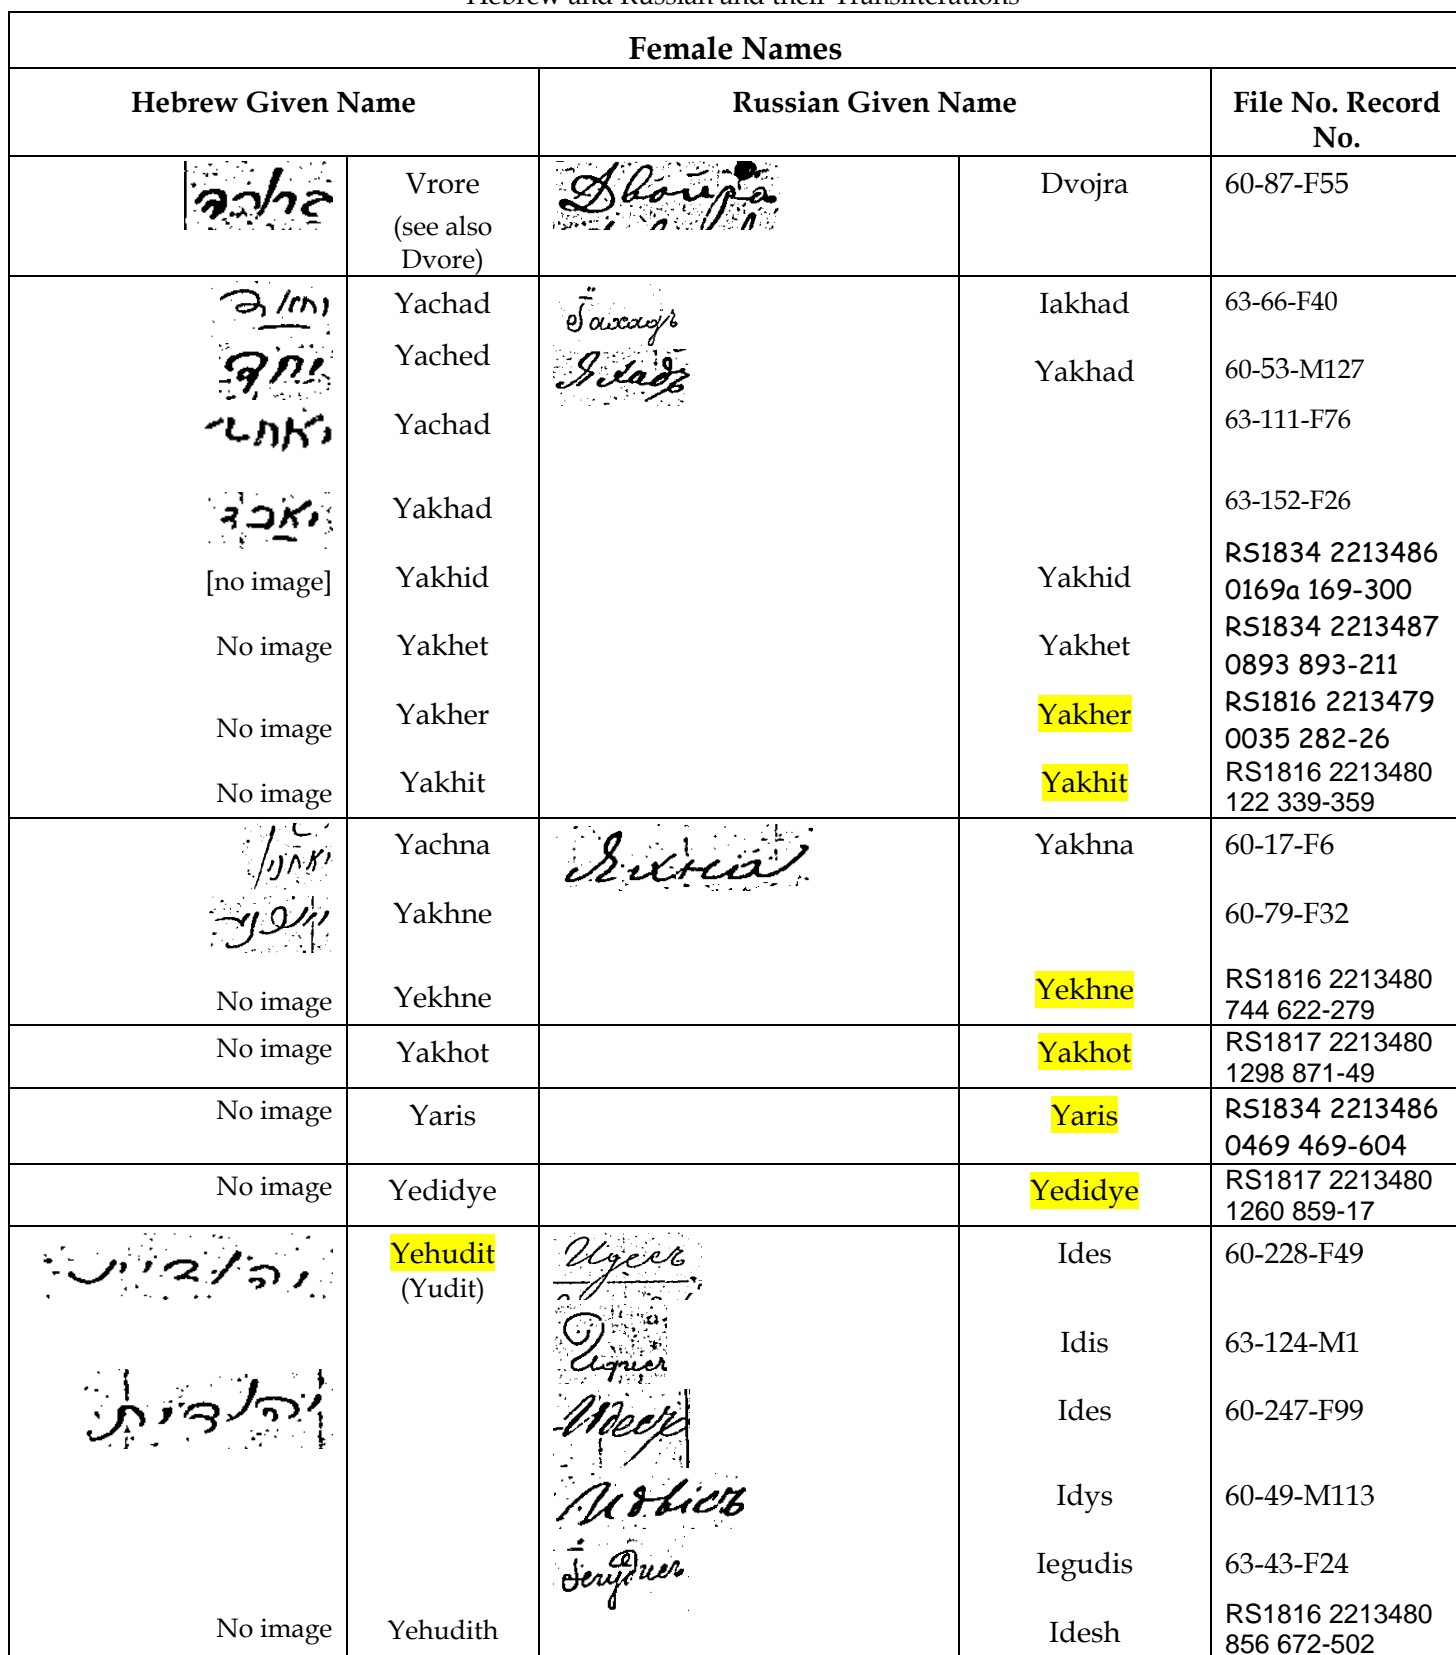 Hebrew and Russian and their Transliterations
Female Names
Hebrew Given Name Russian Given Name File No. Record
No.
Vrore Двойра Dvojra 60-87-F55
(see also
Dvore)
Yachad Iakhad 63-66-F40
יחד Yached Яхадъ Yakhad 60-53-M127
Yachad 63-111-F76
יאכד Yakhad 63-152-F26
[no image] Yakhid Yakhid RS1834 2213486
0169a 169-300
No image Yakhet Yakhet RS1834 2213487
0893 893-211
No image Yakher Yakher RS1816 2213479
0035 282-26
No image Yakhit Yakhit RS1816 2213480
122 339-359
Yachna Яхна Yakhna 60-17-F6
Yakhne 60-79-F32
No image Yekhne Yekhne RS1816 2213480
744 622-279
No image Yakhot Yakhot RS1817 2213480
1298 871-49
No image Yaris Yaris RS1834 2213486
0469 469-604
No image Yedidye Yedidye RS1817 2213480
1260 859-17
יהודית Yehudit Идесъ Ides 60-228-F49
(Yudit)
Идисъ Idis 63-124-M1
יהודית Идесъ Ides 60-247-F99
Идысъ Idys 60-49-M113
Iegudis 63-43-F24
No image Yehudith Idesh RS1816 2213480
856 672-502